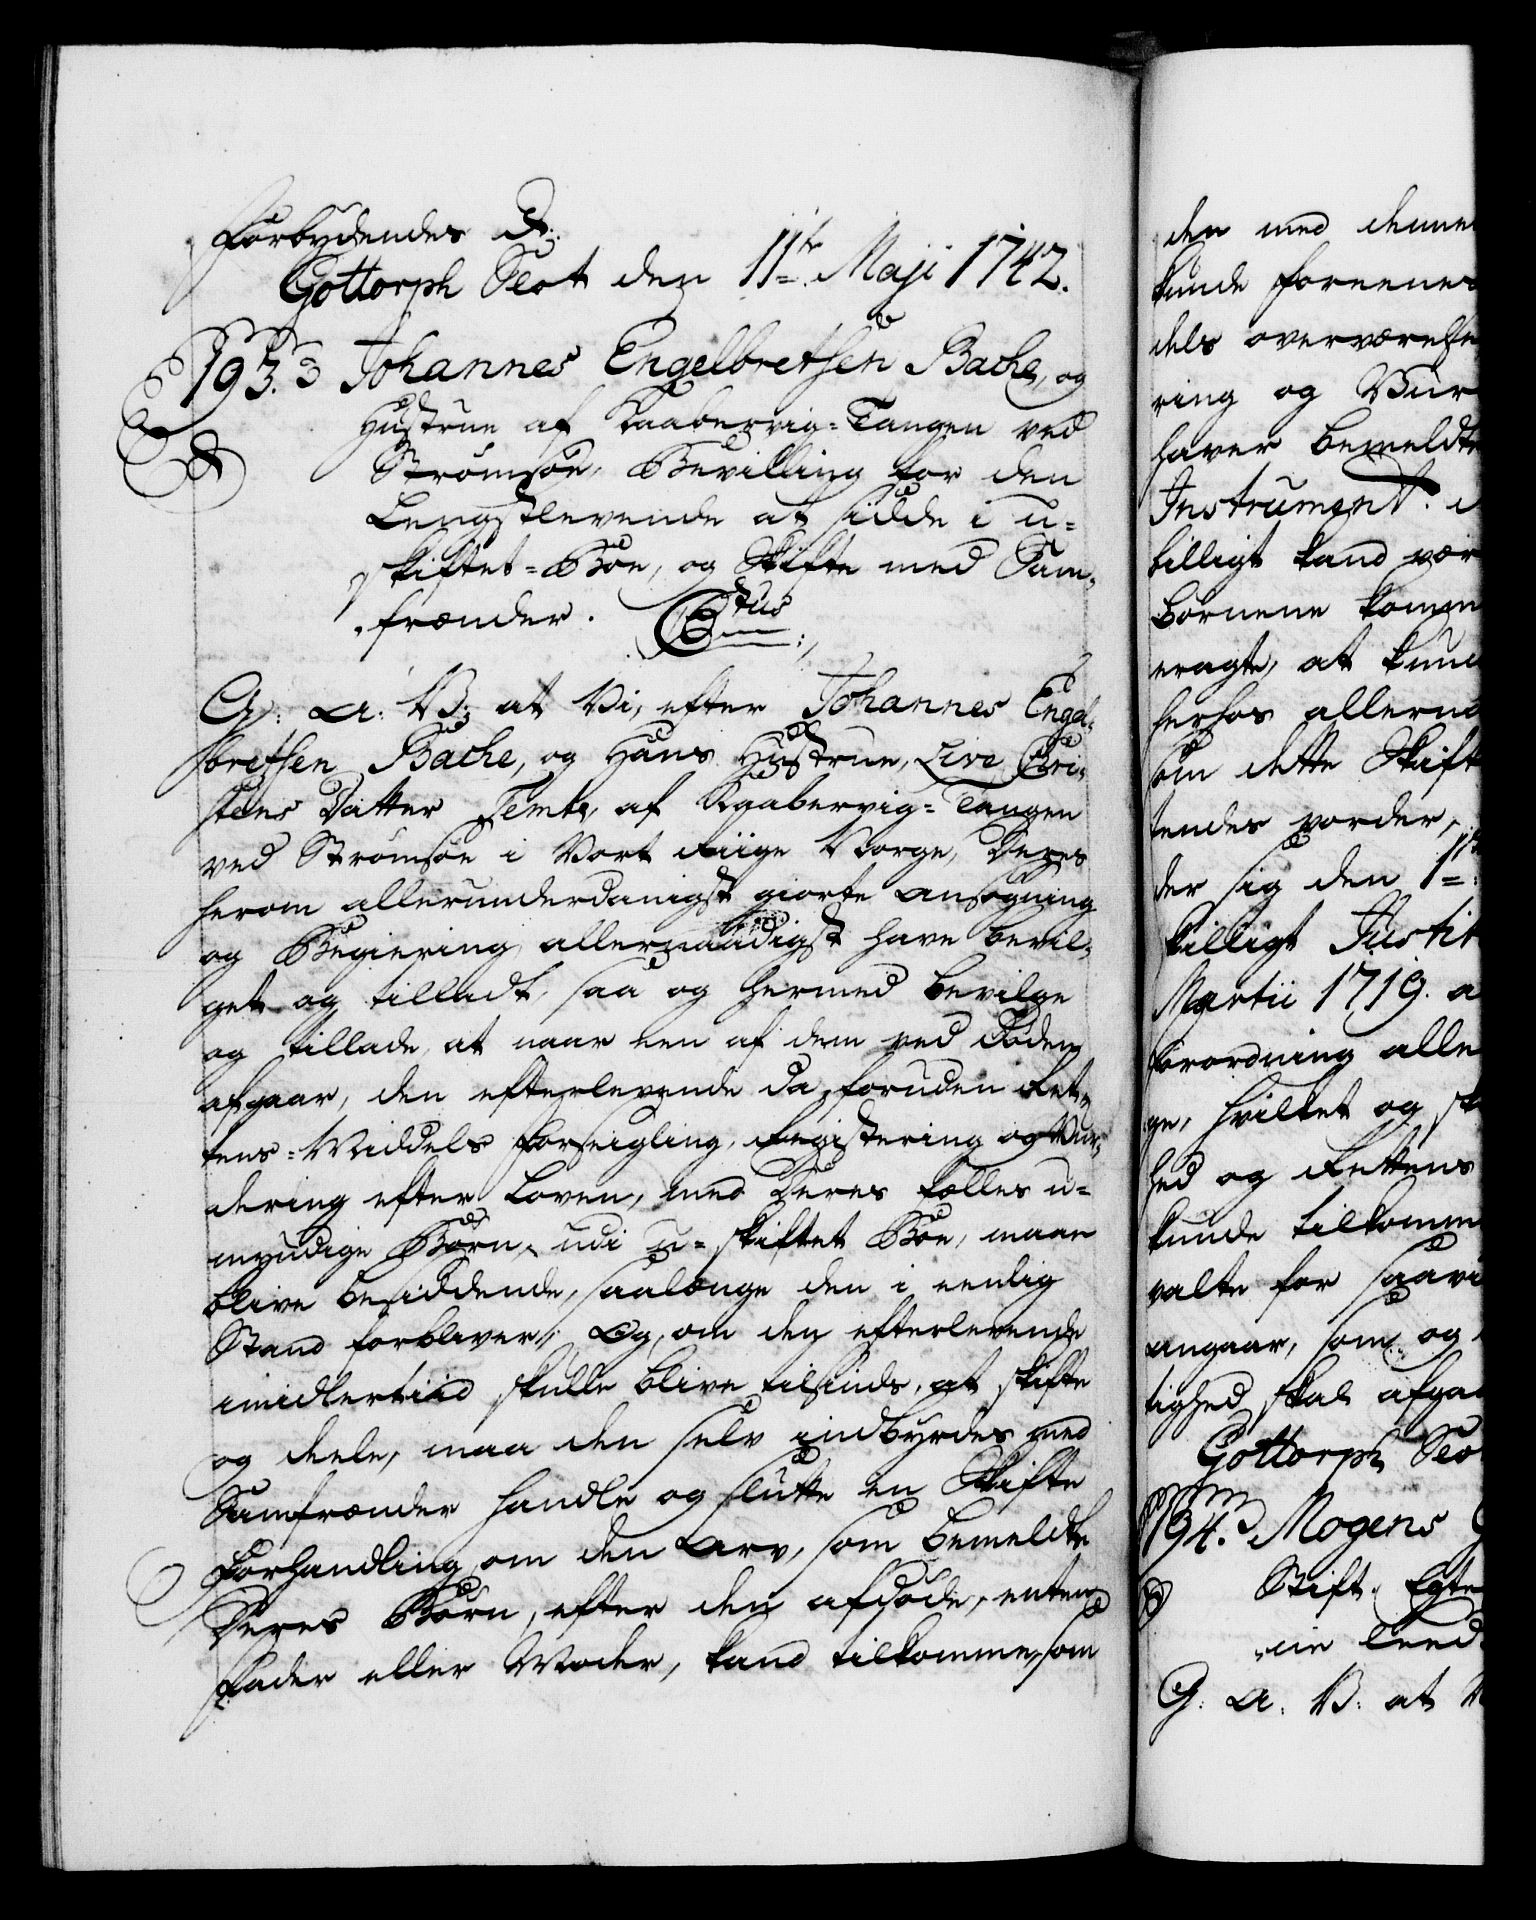 Forbydendes &:
Gottorph Slot den 11te Maji 1742.
193. Johannes Engelbretsen Bache, og
Hustrue af Kaabervig=Tangen ved
Strømsøe, Bevilling for den
Lengstlevende at sidde i u=
skiftet=Boe, og Skifte med Sam-
frænder. Gtus
G: A: V: at Vi, efter Johannes Engel-
bretsen Bache, og Hans Hustrue, Live Chri-
stens Datter Temte, af Kaabervig=Tangen
ved Strømsøe i Vort Riige Norge, Deres
herom allerunderdanigst giorte Ansøgning
og Begiering, allernaadigst have bevil-
get og tilladt, saa og hermed bevilge
og tillade, at naar een af dem ved Døden
afgaar, den efterlevende da, foruden Ret-
tens=Middels Forseigling, Registering og Vur-
dering efter Loven, med Deres fælles u=
myndige Børn, udi u=skiftet Boe, maae
blive besiddende, saalænge den i eenlig
Stand forbliver; Og, om den efterlevende
imidlertiid skulle blive tilsinds, at skifte
og deele, maa den selv indbyrdes med
Samfrænder handle og slutte en Skifte
Forhandling om den Arv, som bemeldte
Deres Børn, efter den afdøde, enten
Fader eller Moder, kand tilkomme, som
den med denne
kunde foreenes
dels overværelse
ring og Vur
haver bemeldte
Instrument
billigt kand vær
Børnene komm
eragte, at kun
herhos allerna
om dette Skift
tendes vorder,
der sig den 11te
billigt Justit
Martii 1719. a
forordning alle
ge, hvilket og
hed og Rettens
kunde tilkomme
valte for saavi
angaar, som og
tighed skal afga
Gottorph Slo
194. Mogens
Stift. Egte
G: A: V: at V